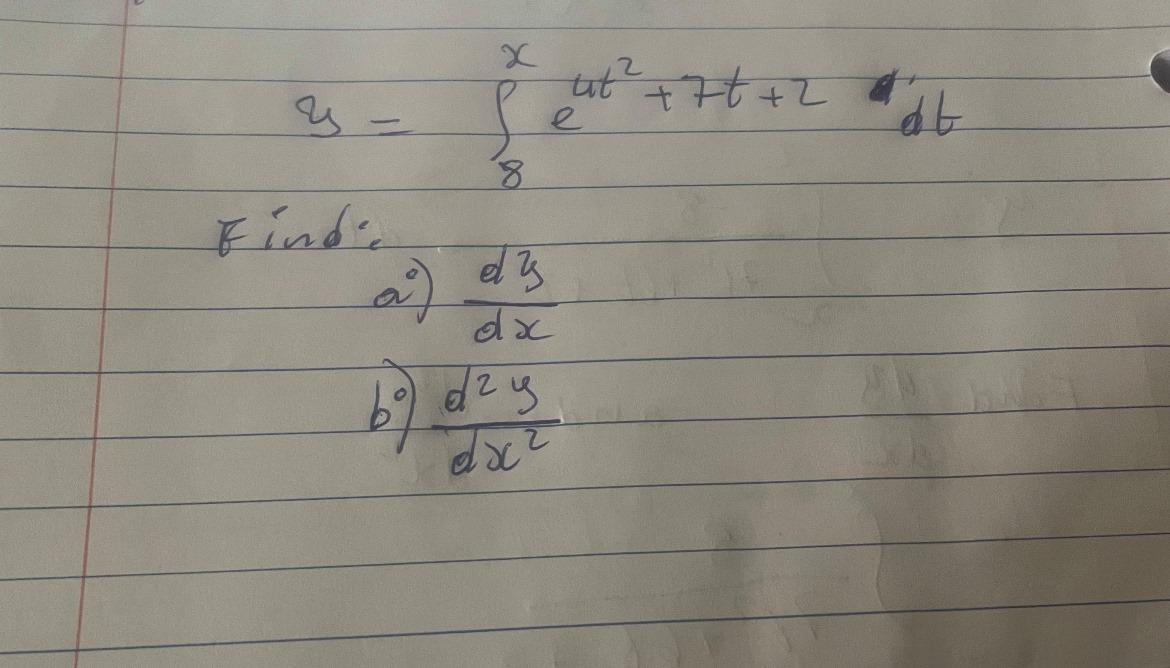 y = ∫₈ˣ e^{4t² + 7t + 2} dt
Find:
a) dy/dx
b) d²y/dx²